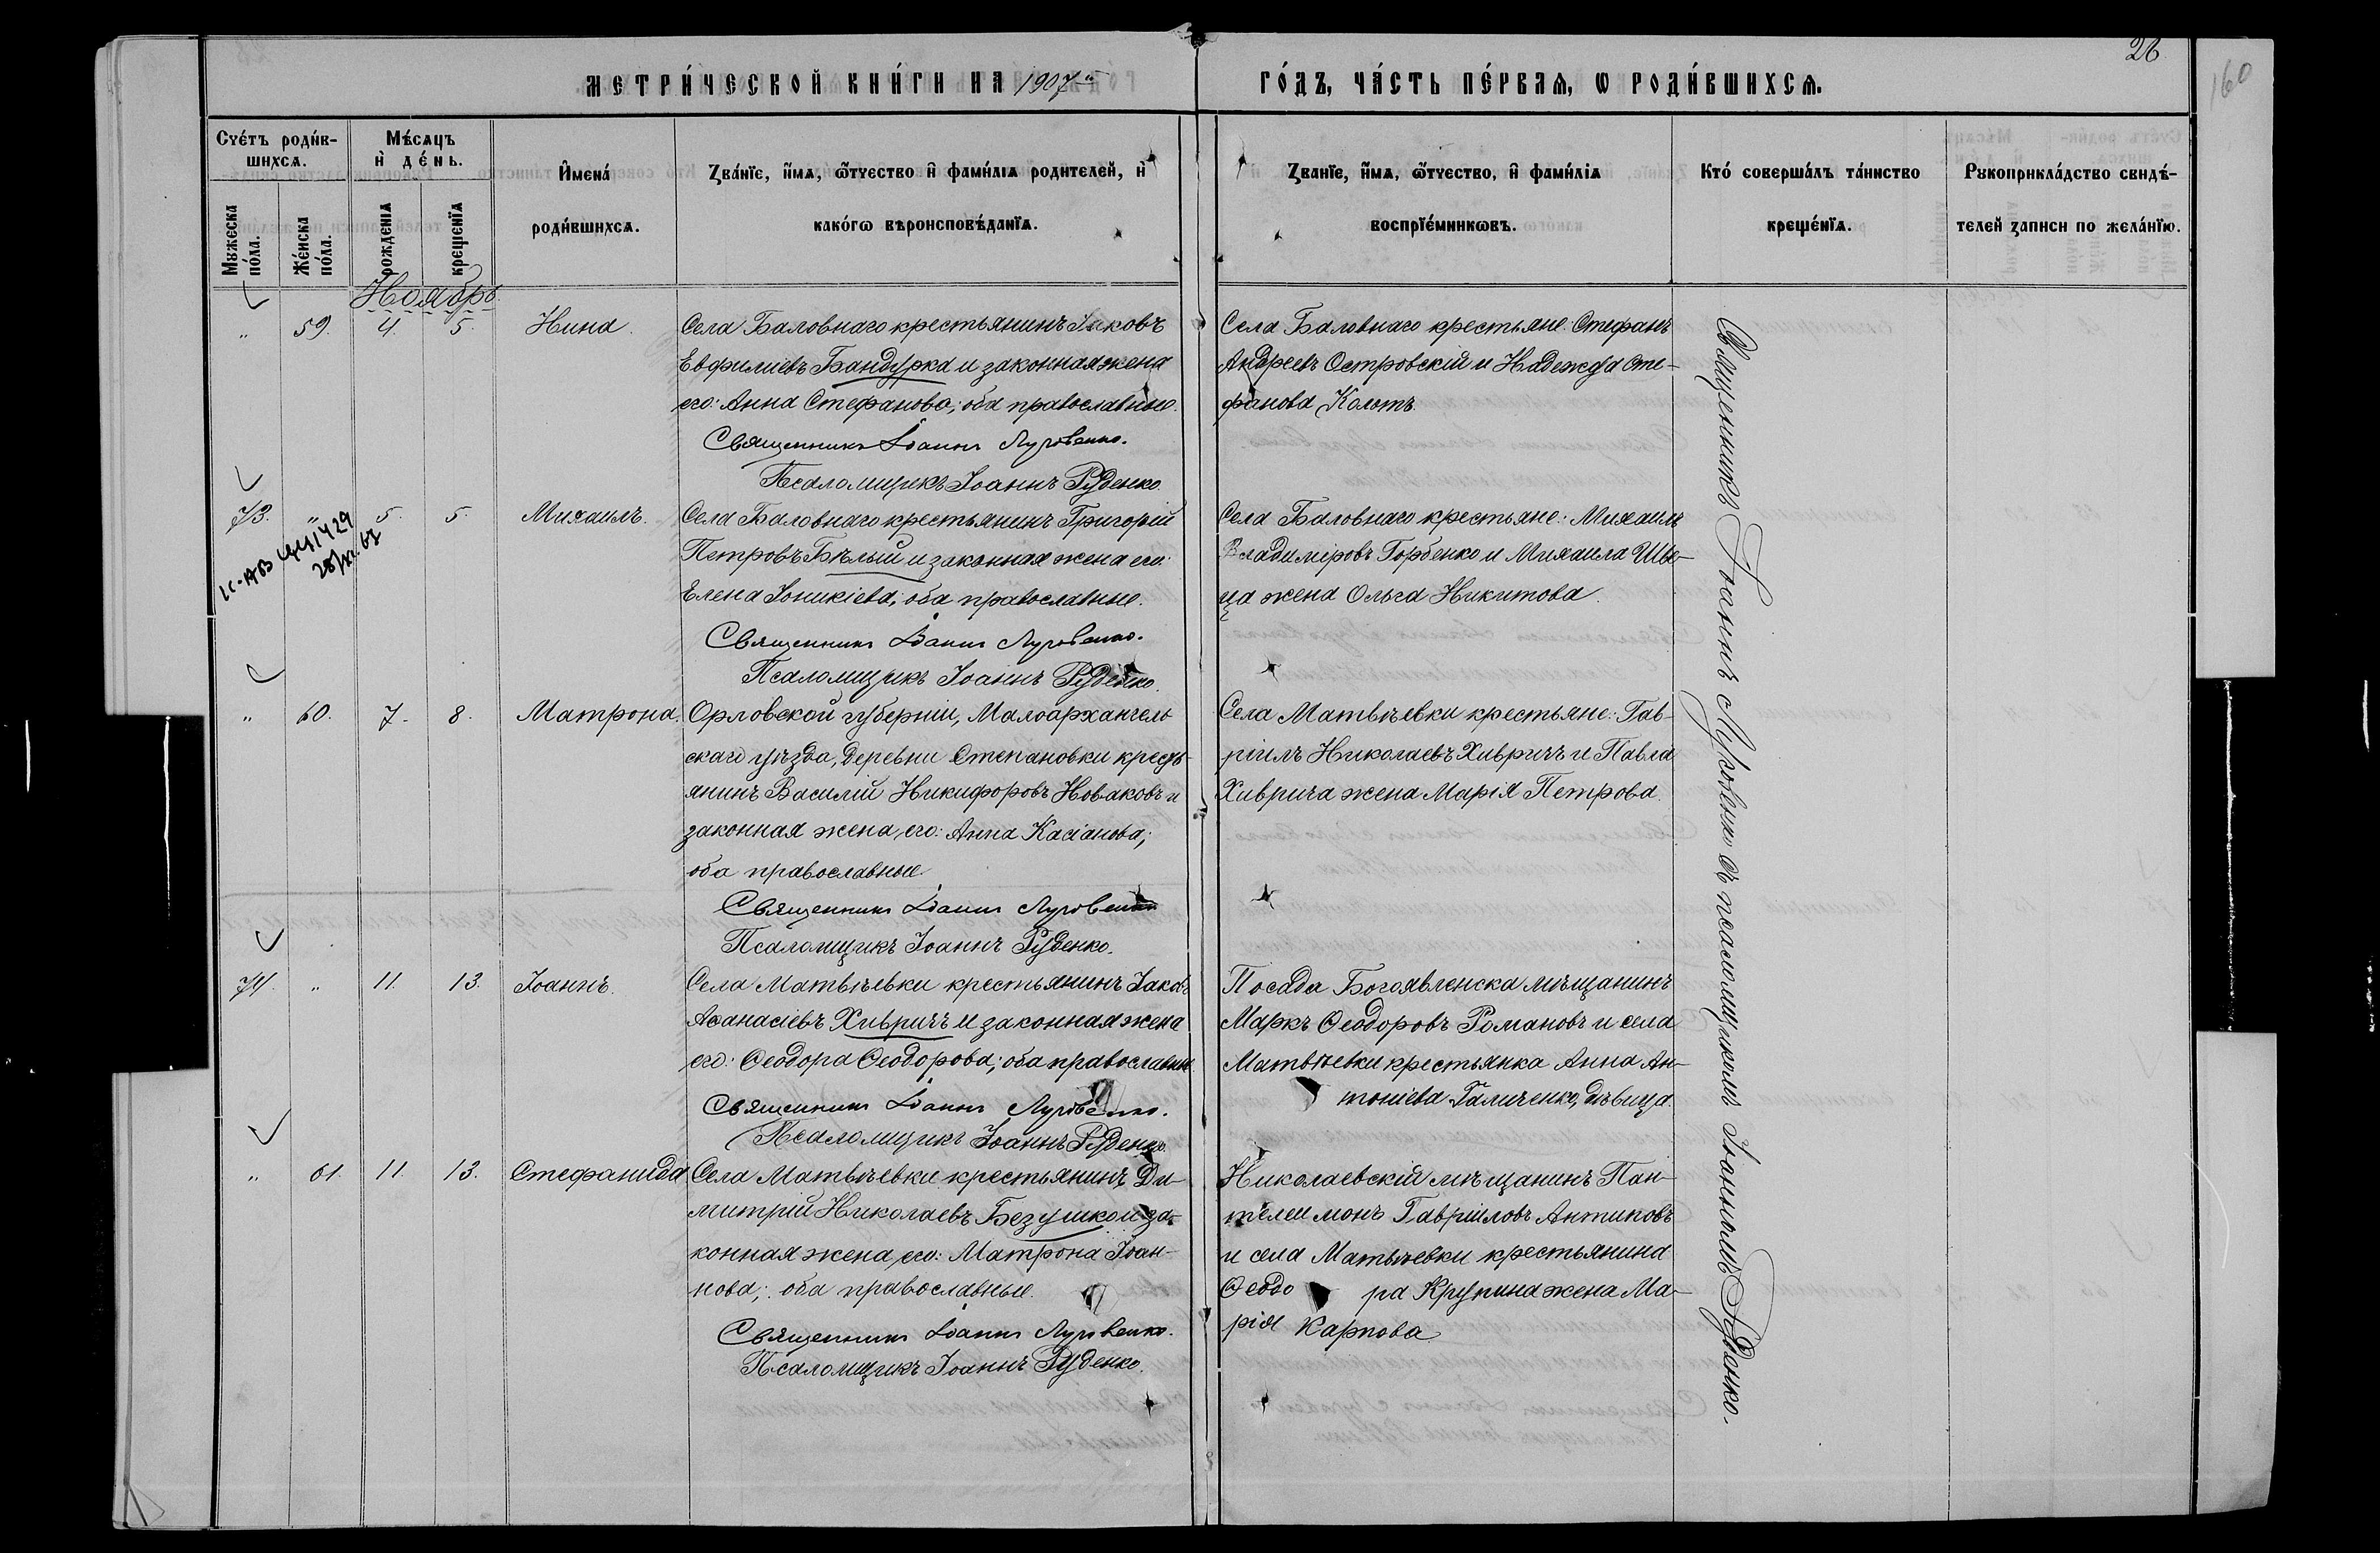 26
160
МЕТРИ́ЧЕСКОЙ КНИ́ГИ НА 1907й
ГО́ДЪ, ЧА́СТЬ ПЕ́РВАЯ, Ѡ РОДИ́ВШИХСЯ.
Сче́тъ роди́в-
шихся.
Мѣ́сяцъ
и де́нь.
Мꙋжеска
по́ла.
Же́нска
по́ла.
рожденія
крещенія
Имена́
роди́вшихся.
Зва́ніе, и́мя, ѻ́тчество и фами́лія родителей, и
како́гѡ вѣроисповѣ́данія.
Званіе, и́мя, ѻ́тчество, и фами́лія
воспріе́мникѡвъ.
Кто́ соверша́лъ та́инство
креще́нія.
Рꙋкоприкла́дство свидѣ́-
телей записи по жела́нію.
Ноябрь
" 59. 4. 5. Нина.
Села Баловнаго крестьянинъ Іаковъ
Евфиміевъ Бандурка и законная жена
его: Анна Стефанова; оба православные.
Священникъ Іоаннъ Луговенко.
Псаломщикъ Іоаннъ Руденко.
Села Баловнаго крестьяне: Стефанъ
Андреевъ Островскій и Надежда Сте-
фанова Колотъ.
73. " 5. 5. Михаилъ.
Села Баловнаго крестьянинъ Григорій
Петровъ Бѣлый и законная жена его:
Елена Іоникіева; оба православные.
Священникъ Іоаннъ Луговенко.
Псаломщикъ Іоаннъ Руденко.
Села Баловнаго крестьяне: Михаилъ
Владиміровъ Горбенко и Михаила
жена Ольга Никитова.
" 60. 7. 8. Матрона.
Орловской губерніи, Малоархангель
скаго уѣзда, деревни Степановки кресть-
янинъ Василій Никифоровъ Новаковъ и
законная жена его: Анна Касіанова;
оба православные
Священникъ Іоаннъ Луговенко
Псаломщикъ Іоаннъ Руденко.
Села Матвѣевки крестьяне: Гав-
ріилъ Николаевъ Хивричъ и Павла
Хиврича жена Марія Петрова.
74. " 11. 13. Іоаннъ.
Села Матвѣевки крестьянинъ Іаковъ
Аѳанасіевъ Хивричъ и законная жена
его: Ѳеодора Ѳеодорова; оба православные
Священникъ Іоаннъ Луговенко.
Псаломщикъ Іоаннъ Руденко.
Посада Богоявленска мѣщанинъ
Маркъ Ѳеодоровъ Романовъ и села
Матвѣевки крестьянка Анна Ан-
тоніева Галиченко, дѣвица.
" 61. 11. 13. Стефанида
Села Матвѣевки крестьянинъ Ди-
митрій Николаевъ Безушко и за-
конная жена его: Матрона Іоан-
нова; оба православные.
Священникъ Іоаннъ Луговенко.
Псаломщикъ Іоаннъ Руденко.
Николаевскій мѣщанинъ Пан-
телеимонъ Гавріиловъ Антиповъ
и села Матвѣевки крестьянина
Ѳеодора Крупина жена Ма-
рія Карпова
Священникъ Іоаннъ Луговенко съ псаломщикомъ Іоанномъ Руденко.